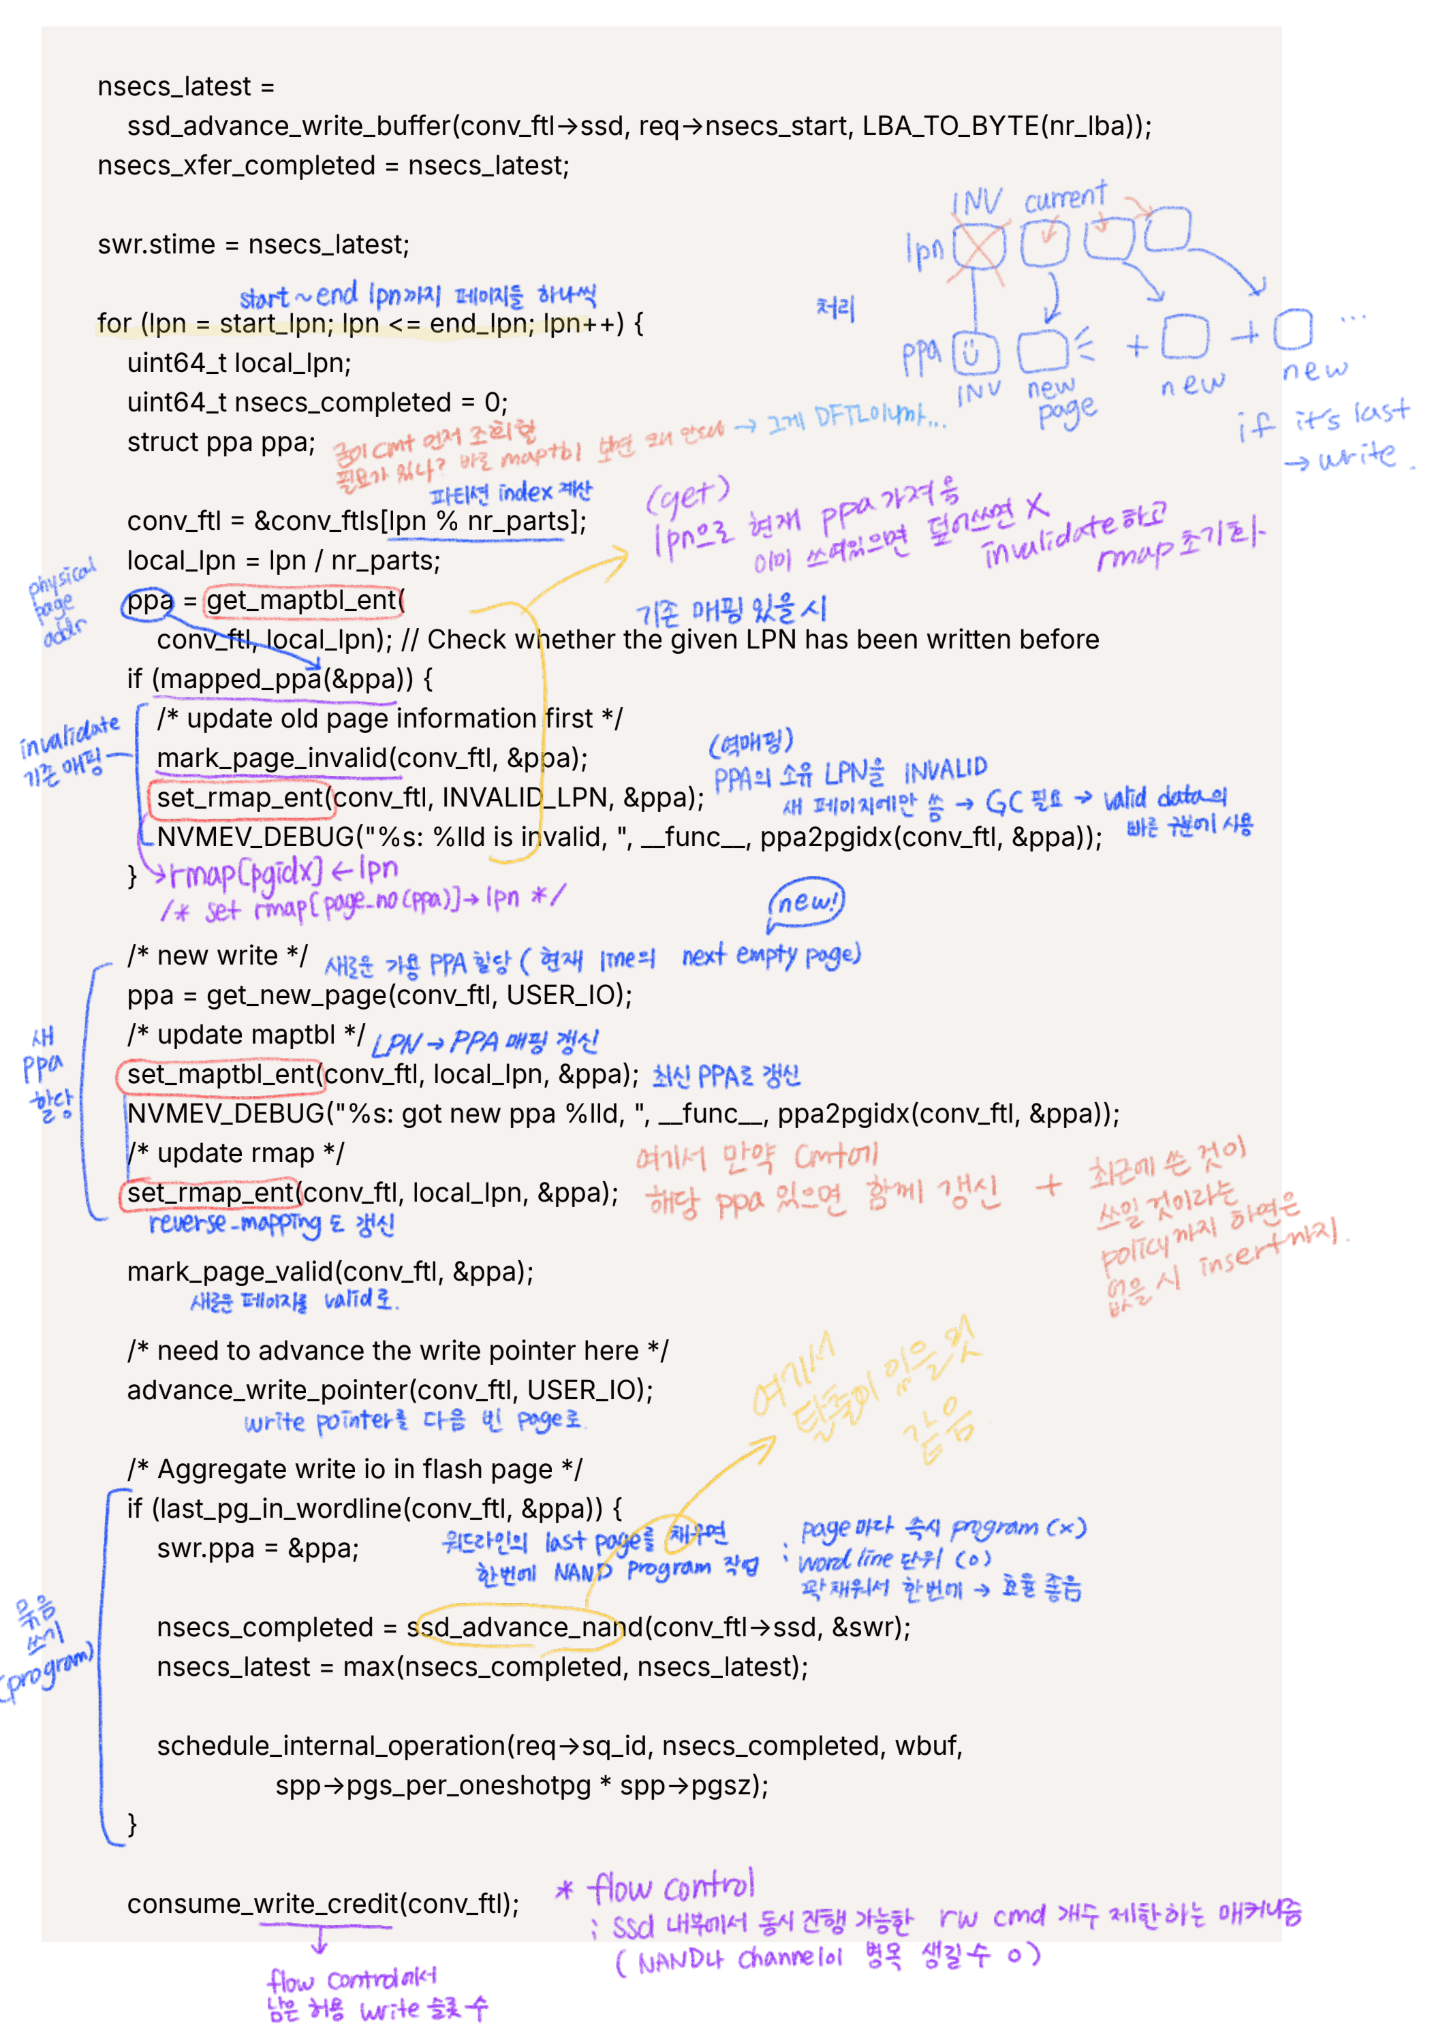 nsecs_latest =
ssd_advance_write_buffer(conv_ftl→ssd, req→nsecs_start, LBA_TO_BYTE(nr_lba));
nsecs_xfer_completed = nsecs_latest;
INV current
lpn
swr.stime = nsecs_latest;
start ~ end lpn까지 페이지들 하나씩
처리
for (lpn = start_lpn; lpn <= end_lpn; lpn++) {
ppa + + ...
INV new page new new
if it's last
→ write.
uint64_t local_lpn;
uint64_t nsecs_completed = 0;
struct ppa ppa;
굳이 cmt 먼저 조회할
필요가 있나? 바로 maptbl 보면 되나 안되나 → 그게 DFTL이니까...
파티션 index 계산
conv_ftl = &conv_ftls[lpn % nr_parts];
(get)
lpn으로 현재 ppa 가져옴
이미 쓰여있으면 덮어쓰면 X
invalidate하고
rmap 초기화
local_lpn = lpn / nr_parts;
physical
page
addr
ppa = get_maptbl_ent(
기존 매핑 있을 시
conv_ftl, local_lpn); // Check whether the given LPN has been written before
if (mapped_ppa(&ppa)) {
invalidate
기존 매핑
/* update old page information first */
mark_page_invalid(conv_ftl, &ppa);
(역매핑)
PPA의 소유 LPN을 INVALID
set_rmap_ent(conv_ftl, INVALID_LPN, &ppa);
새 페이지에만 씀 → GC 필요 → valid data의
빠른 구분에 사용
NVMEV_DEBUG("%s: %lld is invalid, ", __func__, ppa2pgidx(conv_ftl, &ppa));
}
→ rmap[pgidx] ← lpn
/* set rmap[page_no(ppa)] → lpn */
new!
/* new write */
새로운 가용 PPA 할당 ( 현재 line의 next empty page)
ppa = get_new_page(conv_ftl, USER_IO);
새
PPA
할당
/* update maptbl */
LPN → PPA 매핑 갱신
set_maptbl_ent(conv_ftl, local_lpn, &ppa);
최신 PPA로 갱신
NVMEV_DEBUG("%s: got new ppa %lld, ", __func__, ppa2pgidx(conv_ftl, &ppa));
/* update rmap */
set_rmap_ent(conv_ftl, local_lpn, &ppa);
reverse-mapping도 갱신
여기서 만약 cmt에
해당 ppa 있으면 함께 갱신 +
최근에 쓴 것이
쓰일 것이라는
policy까지 하면은
없을 시 insert까지.
mark_page_valid(conv_ftl, &ppa);
새로운 페이지를 valid로.
/* need to advance the write pointer here */
advance_write_pointer(conv_ftl, USER_IO);
write pointer를 다음 빈 page로
여기서
탈출이 있을 것
같음
/* Aggregate write io in flash page */
if (last_pg_in_wordline(conv_ftl, &ppa)) {
워드라인의 last page를 채우면
한번에 NAND Program 작업
; page마다 즉시 program (x)
word line 단위 (o)
꽉 채워서 한번에 → 효율 좋음
swr.ppa = &ppa;
묶음
쓰기
(program)
nsecs_completed = ssd_advance_nand(conv_ftl→ssd, &swr);
nsecs_latest = max(nsecs_completed, nsecs_latest);
schedule_internal_operation(req→sq_id, nsecs_completed, wbuf,
spp→pgs_per_oneshotpg * spp→pgsz);
}
consume_write_credit(conv_ftl);
* flow control
; ssd 내부에서 동시 진행 가능한 rw cmd 개수 제한하는 매커니즘
( NAND나 channel이 병목 생길 수 o )
flow control에서
남은 허용 write 슬롯 수